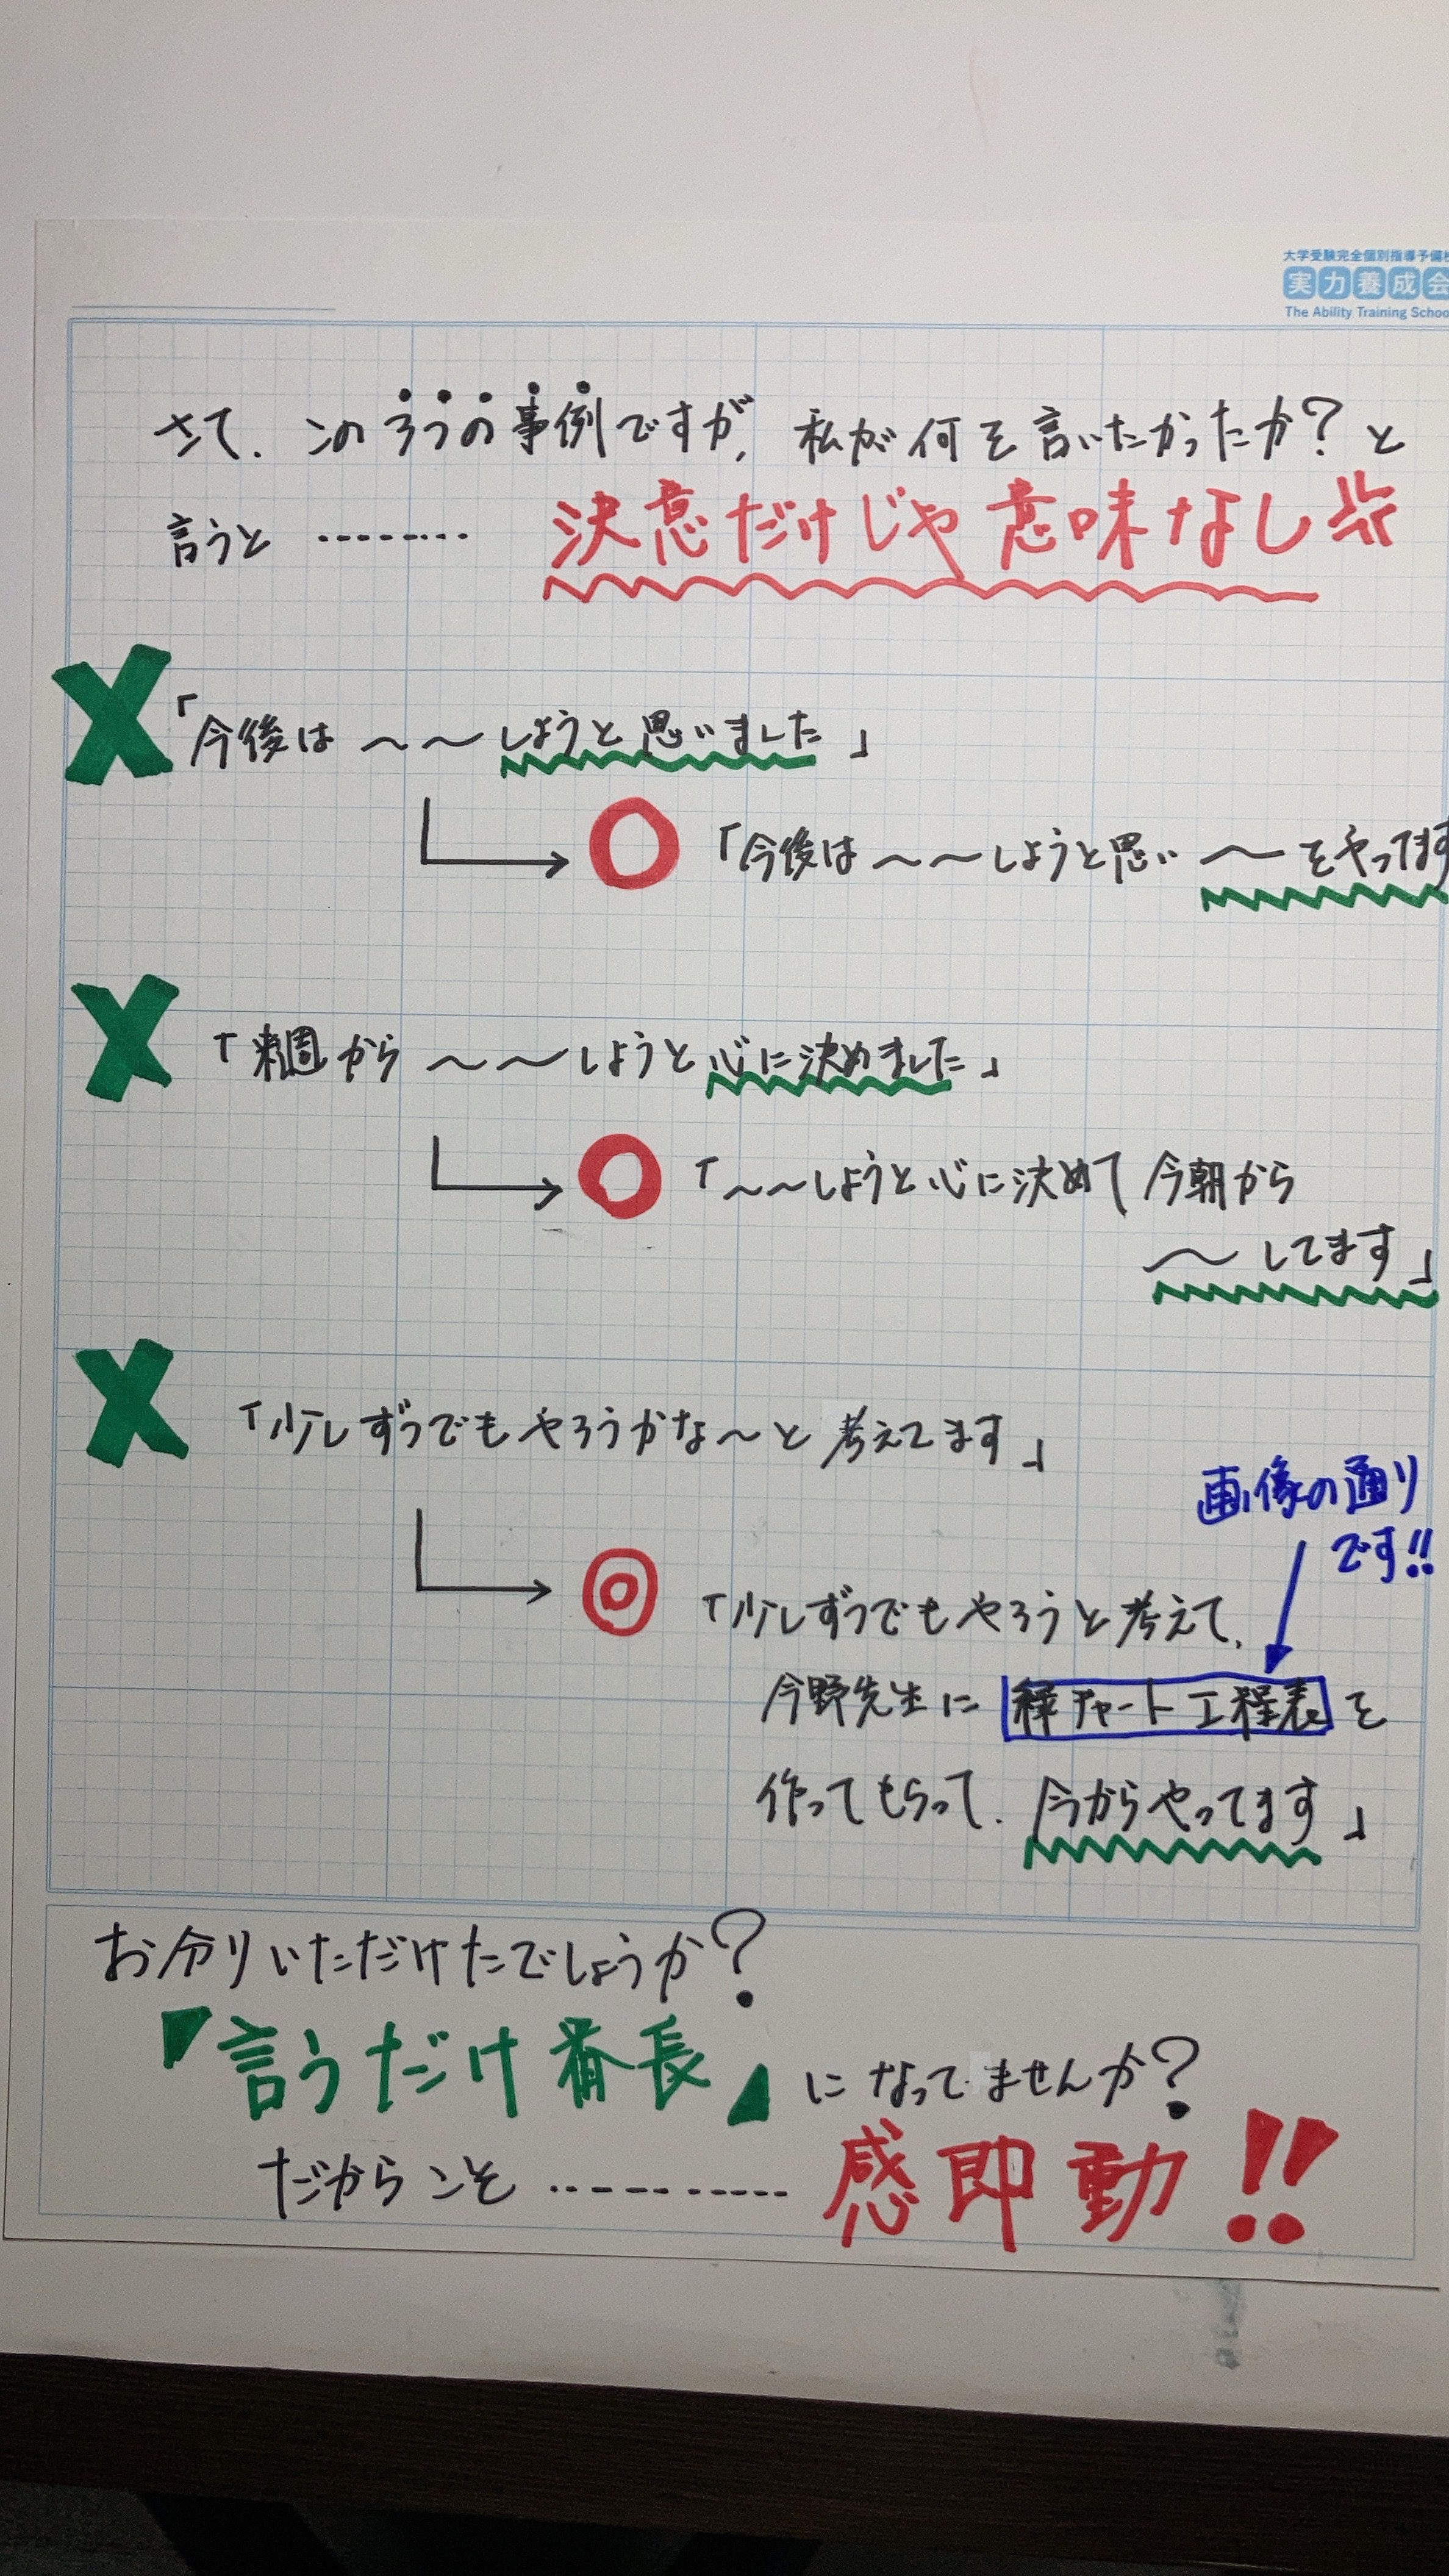 大学受験完全個別指導予備校
実力養成会
The Ability Training School
さて、この3つの事例ですが、私が何を言いたかったか?と
言うと ‥‥‥‥ 決意だけじゃ意味なし
「今後は 〜〜しようと思いました」
「今後は〜〜しようと思い 〜をやってます
「来週から 〜〜しようと心に決めました」
「〜〜しようと心に決めて 今朝から
〜してます」
「少しずつでもやろうかな〜と考えてます」
画像の通り
です!!
「少しずつでもやろうと考えて、
今野先生に チャート工程表を
作ってもらって、今からやってます」
お分りいただけたでしょうか?
『言うだけ番長』になってませんか?
だからこそ ‥‥‥‥ 感即動!!